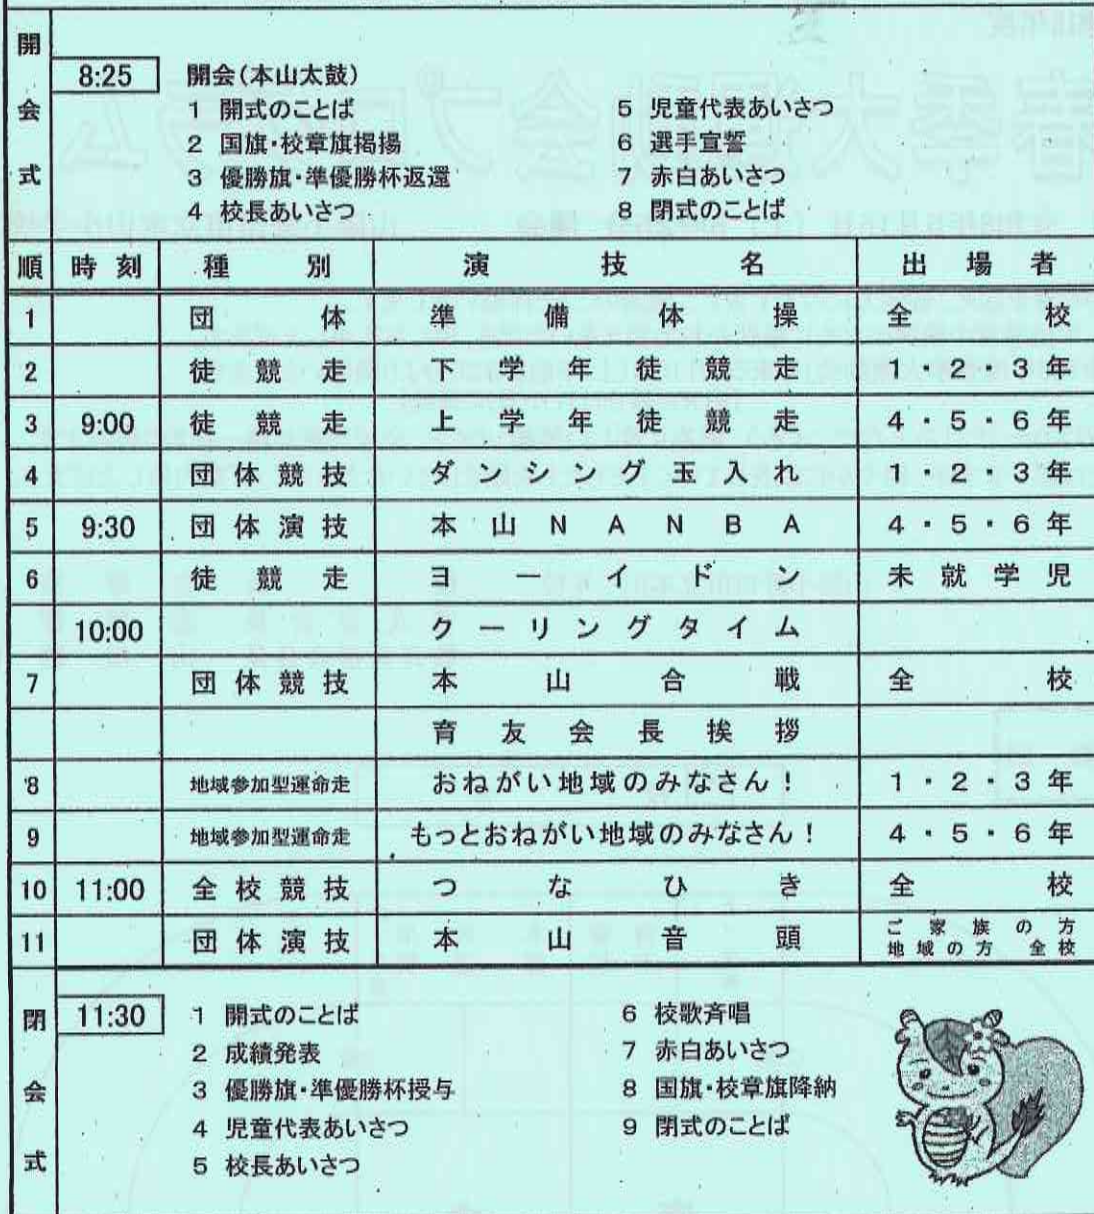 開会式
8:25 開会(本山太鼓)
1 開式のことば
2 国旗・校章旗掲揚
3 優勝旗・準優勝杯返還
4 校長あいさつ
5 児童代表あいさつ
6 選手宣誓
7 赤白あいさつ
8 閉式のことば
順 時刻 種別 演技名 出場者
1 団体 準備体操 全校
2 徒競走 下学年徒競走 1・2・3年
3 9:00 徒競走 上学年徒競走 4・5・6年
4 団体競技 ダンシング玉入れ 1・2・3年
5 9:30 団体演技 本山NANBA 4・5・6年
6 徒競走 ヨーイドン 未就学児
10:00 クーリングタイム
7 団体競技 本山合戦 全校
育友会長挨拶
8 地域参加型運命走 おねがい地域のみなさん! 1・2・3年
9 地域参加型運命走 もっとおねがい地域のみなさん! 4・5・6年
10 11:00 全校競技 つなひき 全校
11 団体演技 本山音頭 ご家族の方
地域の方 全校
閉会式
11:30 1 開式のことば
2 成績発表
3 優勝旗・準優勝杯授与
4 児童代表あいさつ
5 校長あいさつ
6 校歌斉唱
7 赤白あいさつ
8 国旗・校章旗降納
9 閉式のことば